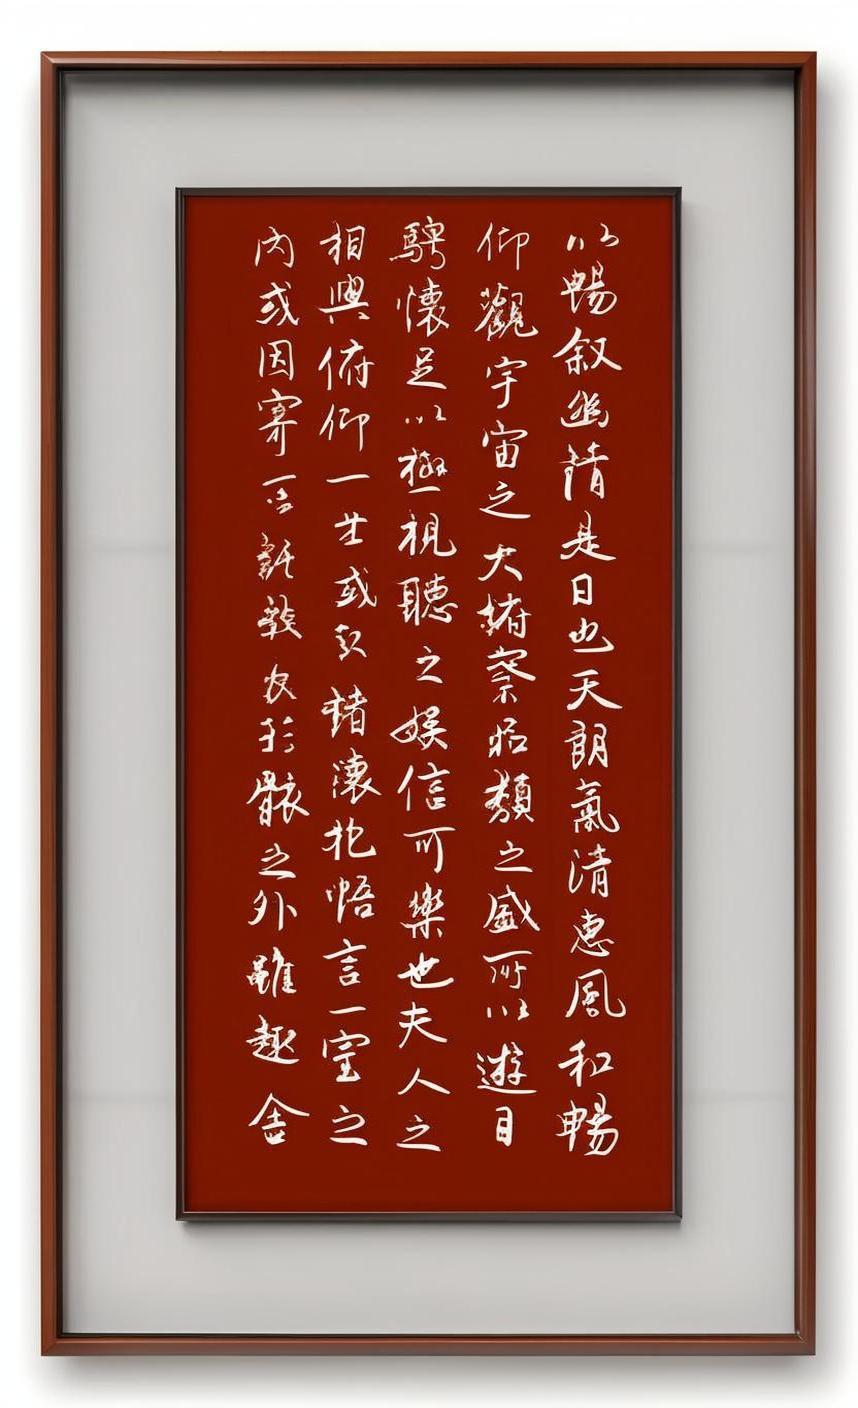 以暢叙幽情是日也天朗氣清惠風和暢
仰觀宇宙之大俯察品類之盛所以遊目
騁懷足以極視聽之娛信可樂也夫人之
相與俯仰一世或取諸懷抱悟言一室之
内或因寄所託放浪形骸之外雖趣舍